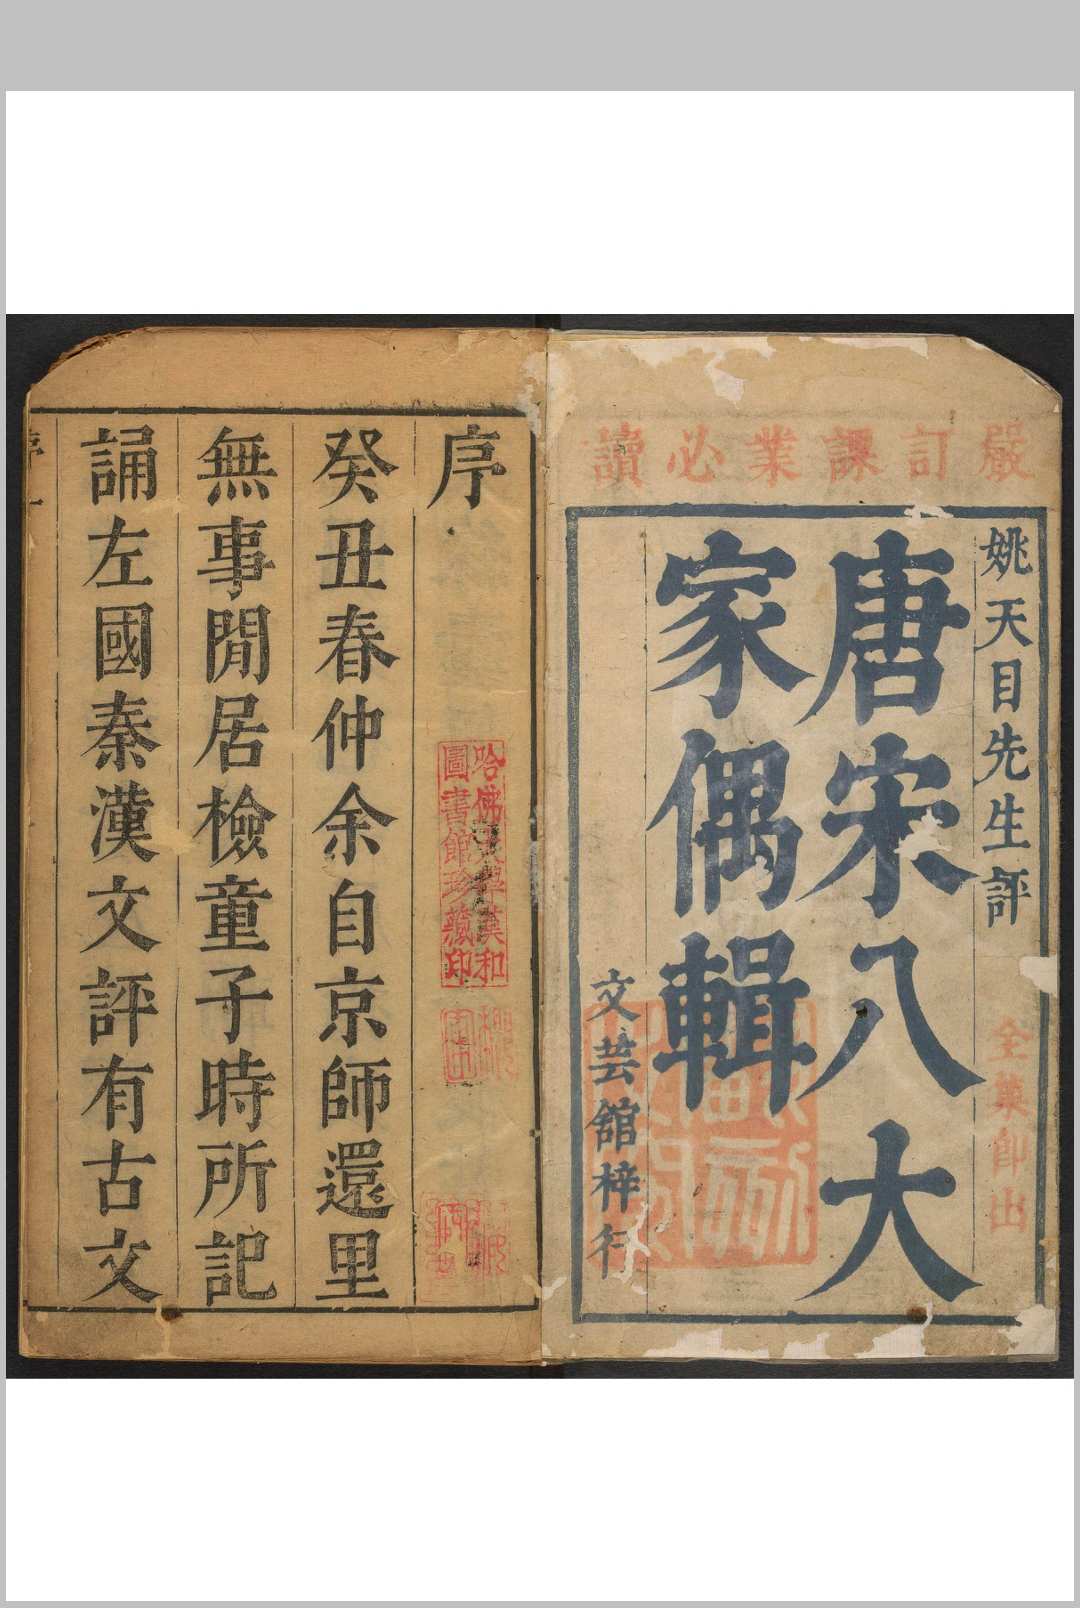 嚴訂課業必讀
姚天目先生評
唐宋八大
家偶輯
文芸舘梓行
全集即出
序
哈佛大學漢和
圖書館珍藏印
癸丑春仲余自京師還里
無事閒居檢童子時所記
誦左國秦漢文評有古文